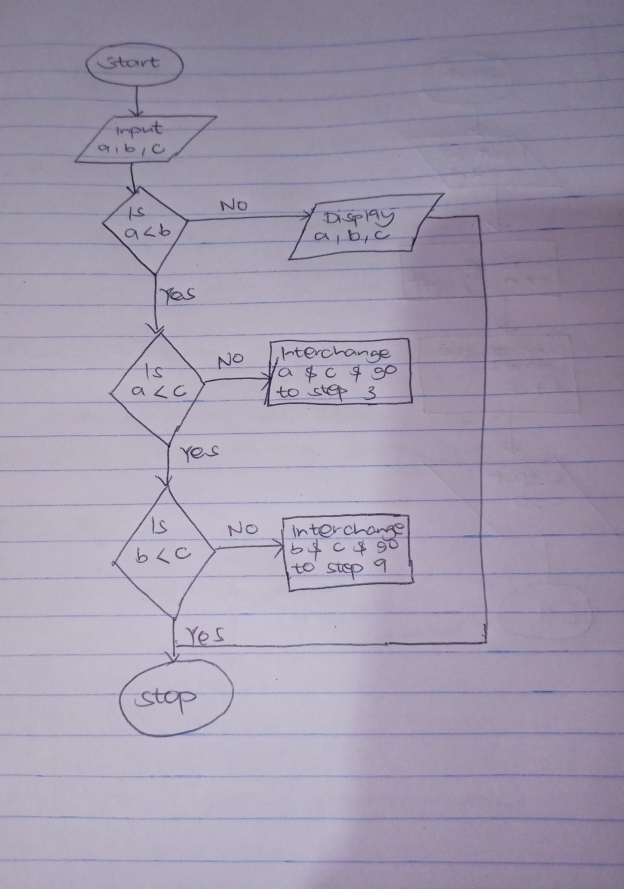 Start
Input
a, b, c
Is
a < b
NO
Display
a, b, c
Yes
Is
a < c
NO
Interchange
a & c & go
to step 3
Yes
Is
b < c
NO
Interchange
b & c & go
to step 9
Yes
Stop